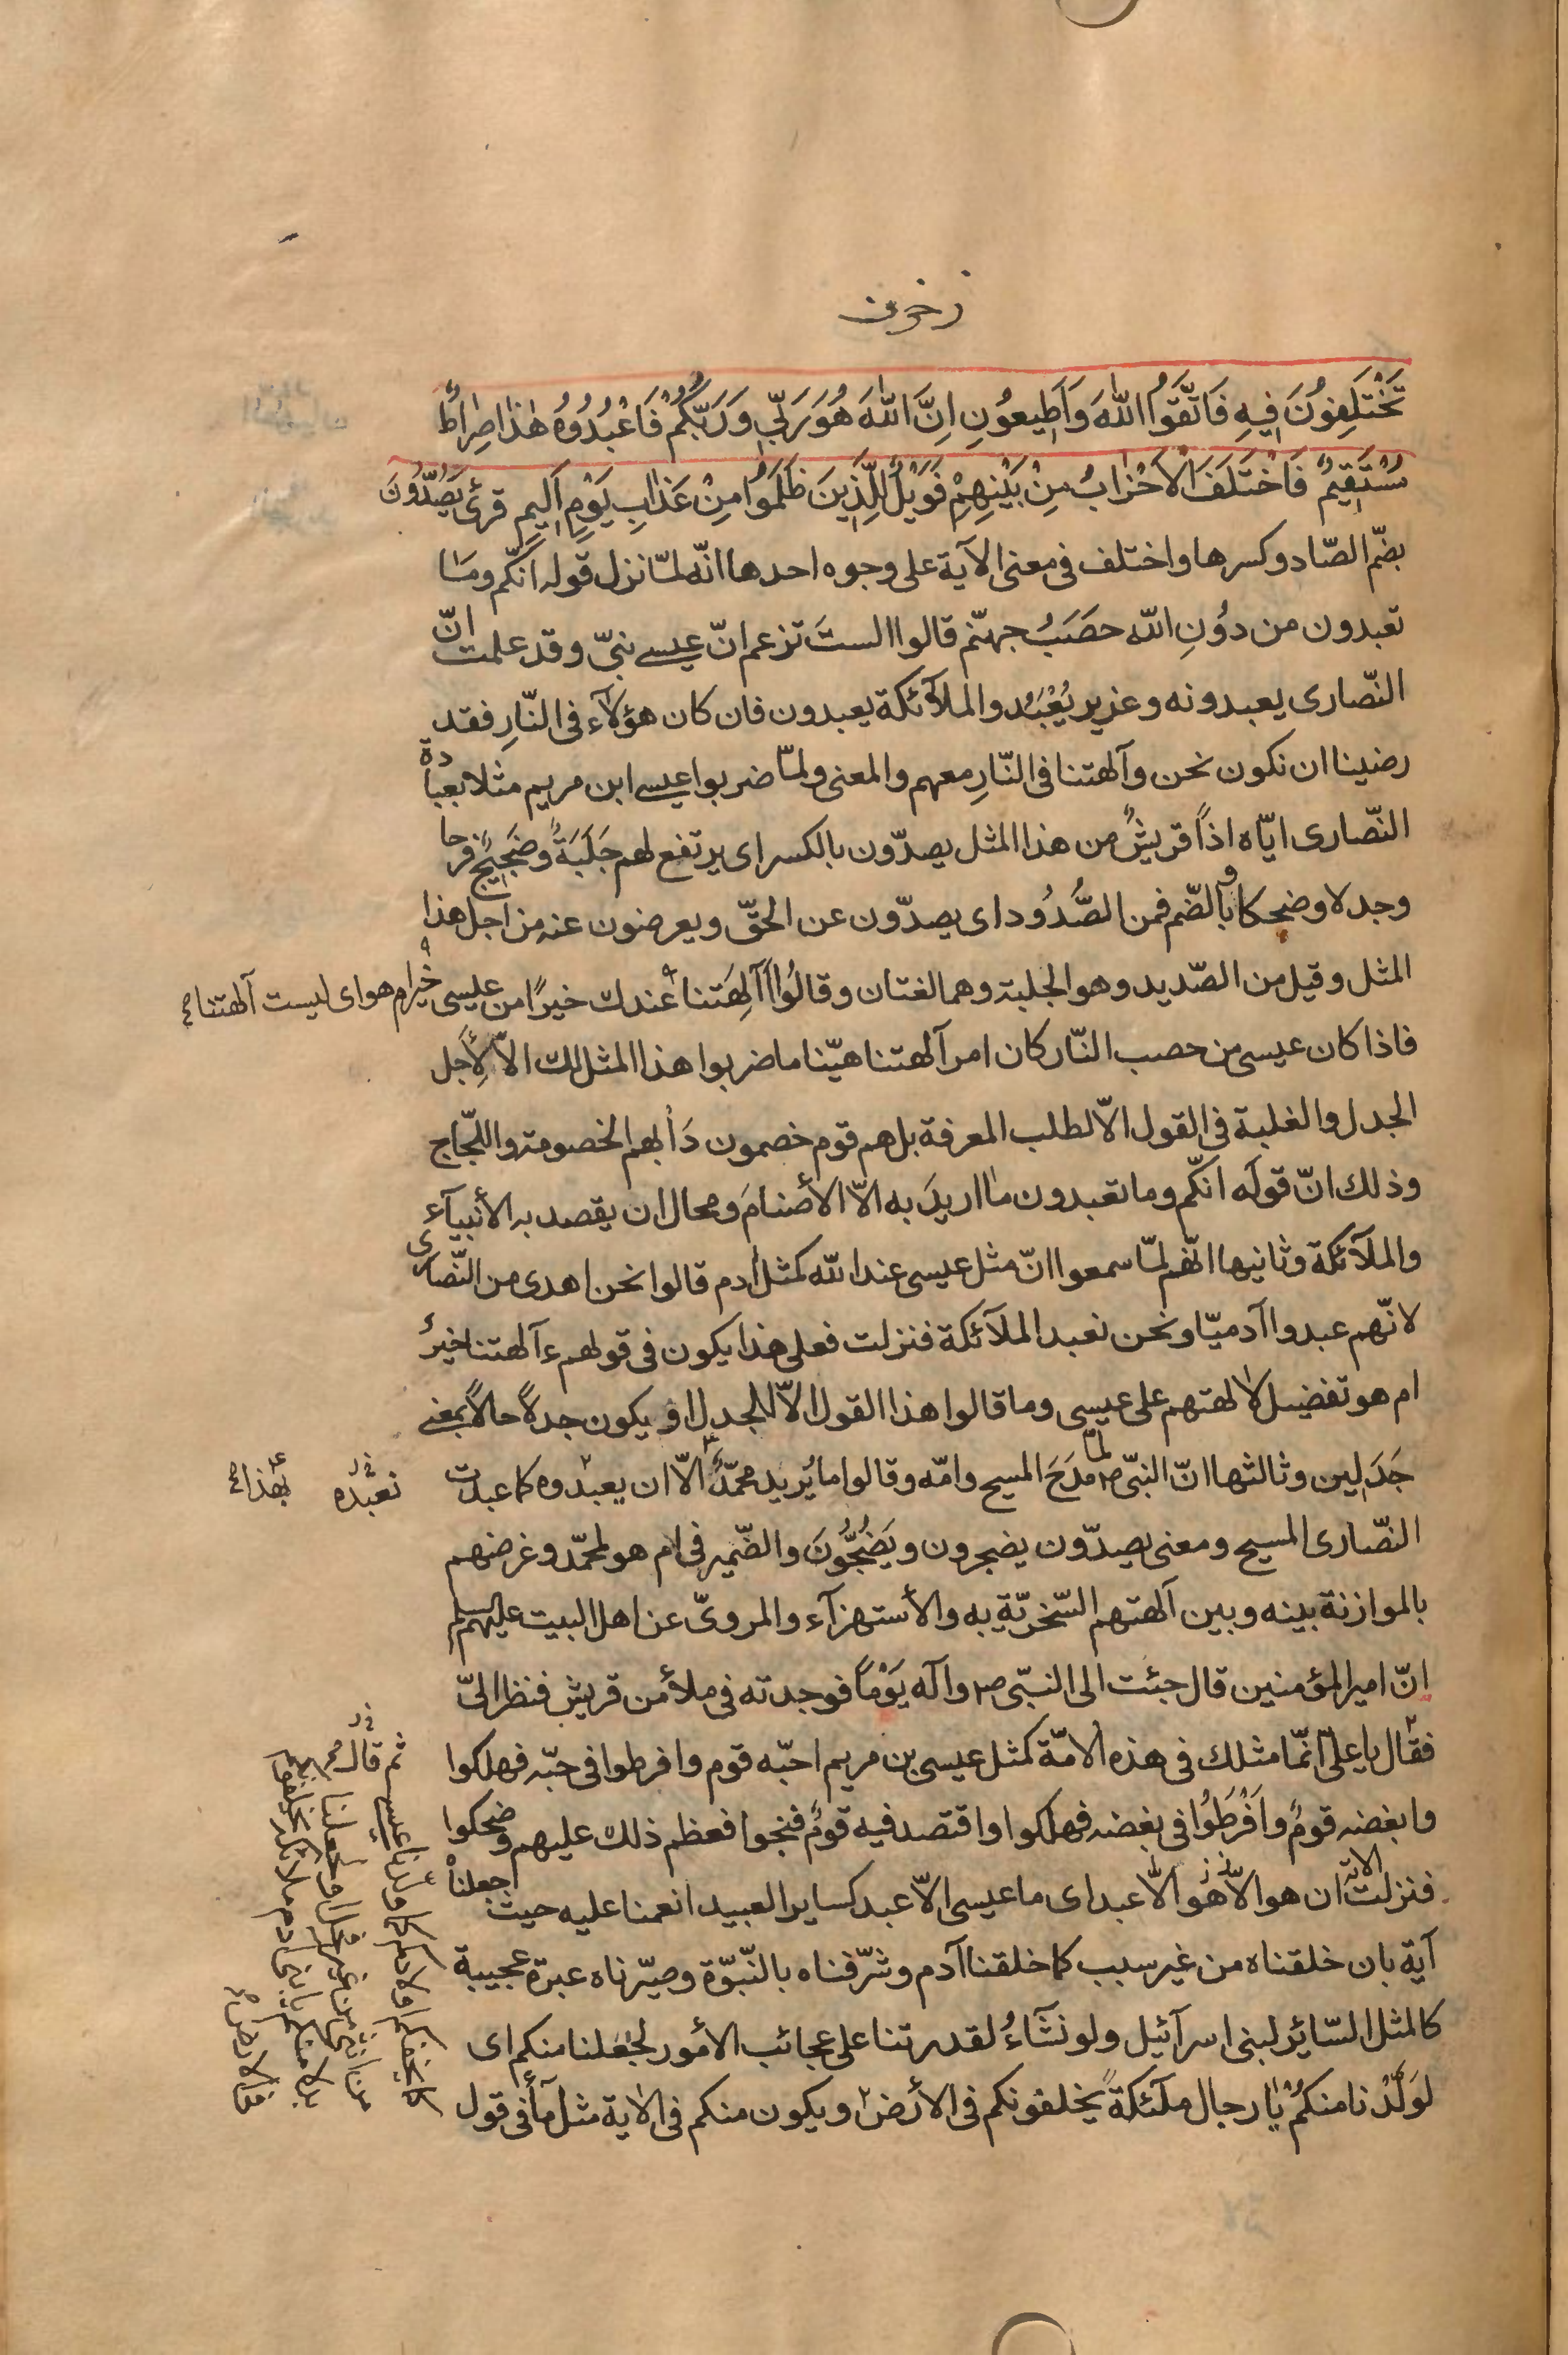 زخرف
تَخْتَلِفُونَ فِيهِ فَاتَّقُوا اللّٰهَ وَاَطِيعُونِ اِنَّ اللّٰهَ هُوَ رَبّٖي وَرَبُّكُمْ فَاعْبُدُوُهُ هٰذا صِرٰاطٌ
مُسْتَقٖيمٌ فَاخْتَلَفَ الْاَحْزٰابُ مِنْ بَيْنِهِمْ فَوَيْلٌ لِلَّذٖينَ ظَلَمُوا مِنْ عَذٰابِ يَوْمٍ اَلٖيمٍ قرئ يَصُدُّونَ
بضمّ الصّاد وكسرها واختلف فى معنى الآية على وجوه احدها انّه لمّا نزل قوله انّكم وما
تعبدون من دوُنِ اللّٰه حصَبُ جهنّم قالوا الستَ تزعم انّ عيسى نبىّ وقد علمت انّ
النّصارى يعبدونه وعزير يُعْبَد والملآئكة يعبدون فان كان هؤلآء فى النّارِ فقد
رضينا ان نكون نحن وآلهتنا فى النّارِ معهم والمعنى ولمّا ضربوا عيسى ابن مريم مثلا بعبادة
النّصارى ايّاه اذاً قريشٌ من هذا المثل يصدّون بالكسر اى يرتفع لهم جَلَبَةٌ وضَجيجٌ فرحا
وجدلا وضحكا وبالضّم فمن الصُّدُود اى يصدّون عن الحقّ ويعرضون عنه من اجل هذا
المثل وقيل من الصّديد وهو الجلبة وهما لغتان وقالُوا أآلِهَتنا عندك خيرًا من عيسى خير ام هو اى ليست آلهتنا
فاذا كان عيسى من حصب النّار كان امر آلهتنا هيّنا ما ضربوا هذا المثل لك الاّ لأِجل
الجدل والغلبة فى القول الاّ لطلب المعرفة بل هم قوم خصمون دَأبهم الخصومة واللّجاج
وذلك انّ قولَه انّكم وما تعبدون ما اريدَ به الاّ الأصنامَ ومحال ان يقصد به الأنبيآء
والملآئكة وثانيها انّهم لمّا سمعوا انّ مثل عيسى عند اللّه كمثل ادم قالوا نحن اهدى من النّصارى
لانّهم عبدوا آدميّا ونحن نعبد الملآئكة فنزلت فعلى هذا يكون فى قولهم ءآلهتنا خيرٌ
ام هو تفضيل لآلهتهم على عيسى وما قالوا هذا القول الاّ للجدل او يكون جدلاً حالاً بمعنى
جَدَلِين وثالثها انّ النبىّ ص لمّا مدَحَ المسيح وامّه وقالوا ما يُريد محمّدٌ الاّ ان يعبدوه كما عبدت
نعبده
بهذا
النّصارى المسيح ومعنى يصدّون يضجرون ويَضُجُّونَ والضّمير فى ام هو لمحمّد وغرضهم
بالموازنة بينه وبين آلهتهم السّخريّة به والأستهزآء والمروىّ عن اهل البيت عليهم السلم
انّ امير المؤمنين قال جئت الى النبّى ص وآله يَوْماً فوجدته فى ملأ من قريش فنظر الىّ
فقال يا علىّ انّما مثلك فى هذه الامّة كمثل عيسى بن مريم احبّه قوم وافرطوا فى حبّه فهلكوا
وابغضه قومٌ وَاَفْرَطوُا فى بغضه فهلكوا واقتصد فيه قومٌ فنجوا فعظم ذلك عليهم وضحكوا
فنزلت الاية ان هو الاّ هو الاّ عبد اى ما عيسى الاّ عبد كساير العبيد انعمنا عليه حيث جعلناه
آية بان خلقناه من غير سبب كما خلقنا آدم وشرّفناه بالنّبوّة وصيّرناه عبرة عجيبة
كالمثل السّائر لبنى اسرآئيل ولو نشَآءُ لقدرتنا على عجائب الأمور لجَعَلنا منكم اى
لوَلّدْنا منكُمْ يا رجال ملآئكةً يخلفونكم فى الأرض ويكون منكم فى الاية مثل مآ فى قول
ثم قال